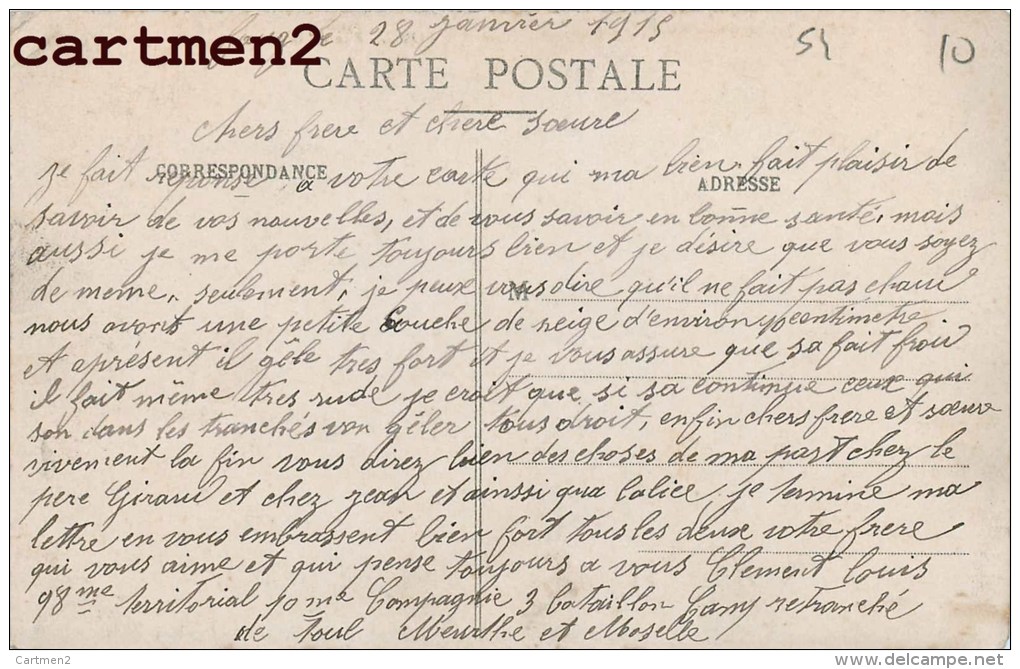 28 janvier 1915
54
10
cartmen2
CARTE POSTALE
chers frere et chere soeure
CORRESPONDANCE
ADRESSE
je fait reponse a votre carte qui ma bien fait plaisir de
savoir de vos nouvelles, et de vous savoir en bonne santé, mois
aussi je me porte toujours bien et je désire que vous soyez
M
de meme, seulement, je peux vous dire qu'il ne fait pas chaud
nous avons une petite couche de neige d'environ 40 centimetre
et aprésent il gêle tres fort et je vous assure que sa fait froid
il fait même tres rude je croit que si sa continue ceux qui
son dans les tranchés von gêler tous droit, enfin chers frere et soeure
vivement la fin vous direz bien des choses de ma part chez le
pere Giraud et chez jean et ainssi qua l'alice. je termine ma
lettre en vous embrassent bien fort tous les deux votre frere
qui vous aime et qui pense toujours a vous Clement Louis
98me territorial 10me Compagnie 3 bataillon Camp retranché
de Toul Meurthe et Moselle
Cartmen2
www.delcampe.net